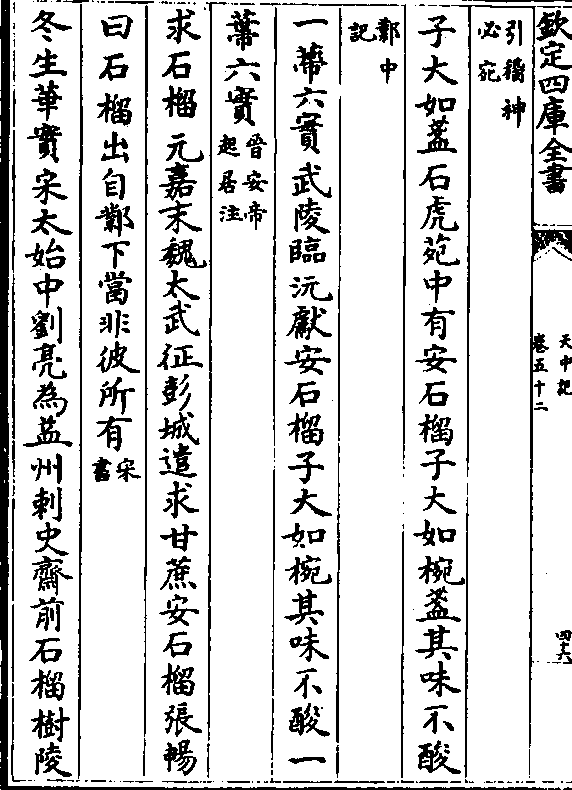 欽定四庫全書
天中記
卷五十二
四十六
引繙神
必宛
子大如盖石虎苑中有安石榴子大如椀盖其味不酸
鄴中
記
一蔕六實武陵臨沅獻安石榴子大如椀其味不酸一
蔕六實晉安帝
起居注
求石榴元嘉末魏太武征彭城遣求甘蔗安石榴張暢
曰石榴出自鄴下當非彼所有宋
書
冬生華實宋太始中劉亮為益州刺史齋前石榴樹陵